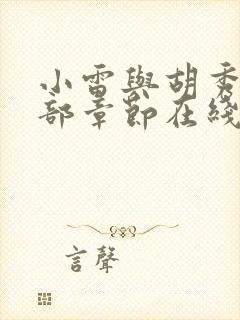 小雷與胡秀
部章節在綫
言聲